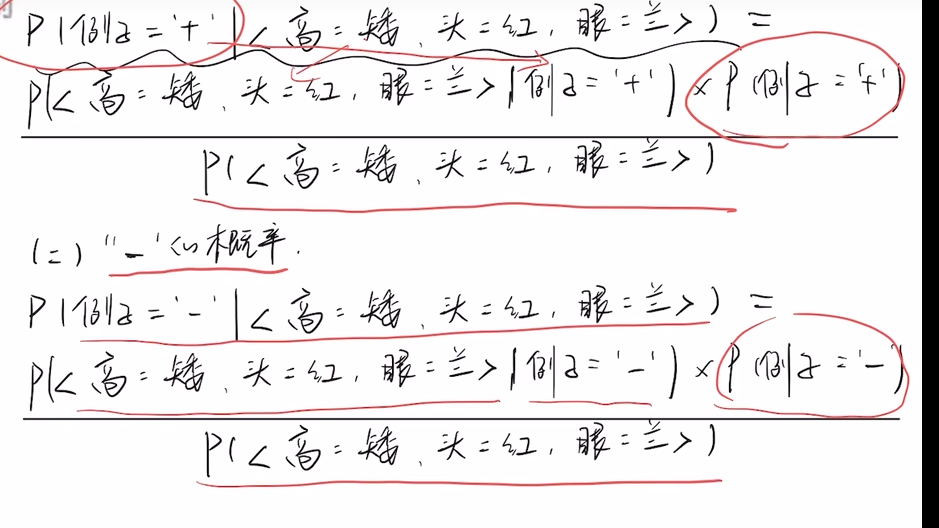 P(例子='+'|<高=矮、头=红,眼=兰>) =
P(<高=矮、头=红,眼=兰>|例子='+')×P(例子='+')
P(<高=矮、头=红,眼=兰>)
(二) "-"的概率.
P(例子='-'|<高=矮、头=红,眼=兰>) =
P(<高=矮、头=红,眼=兰>|例子='-')×P(例子='-')
P(<高=矮、头=红,眼=兰>)